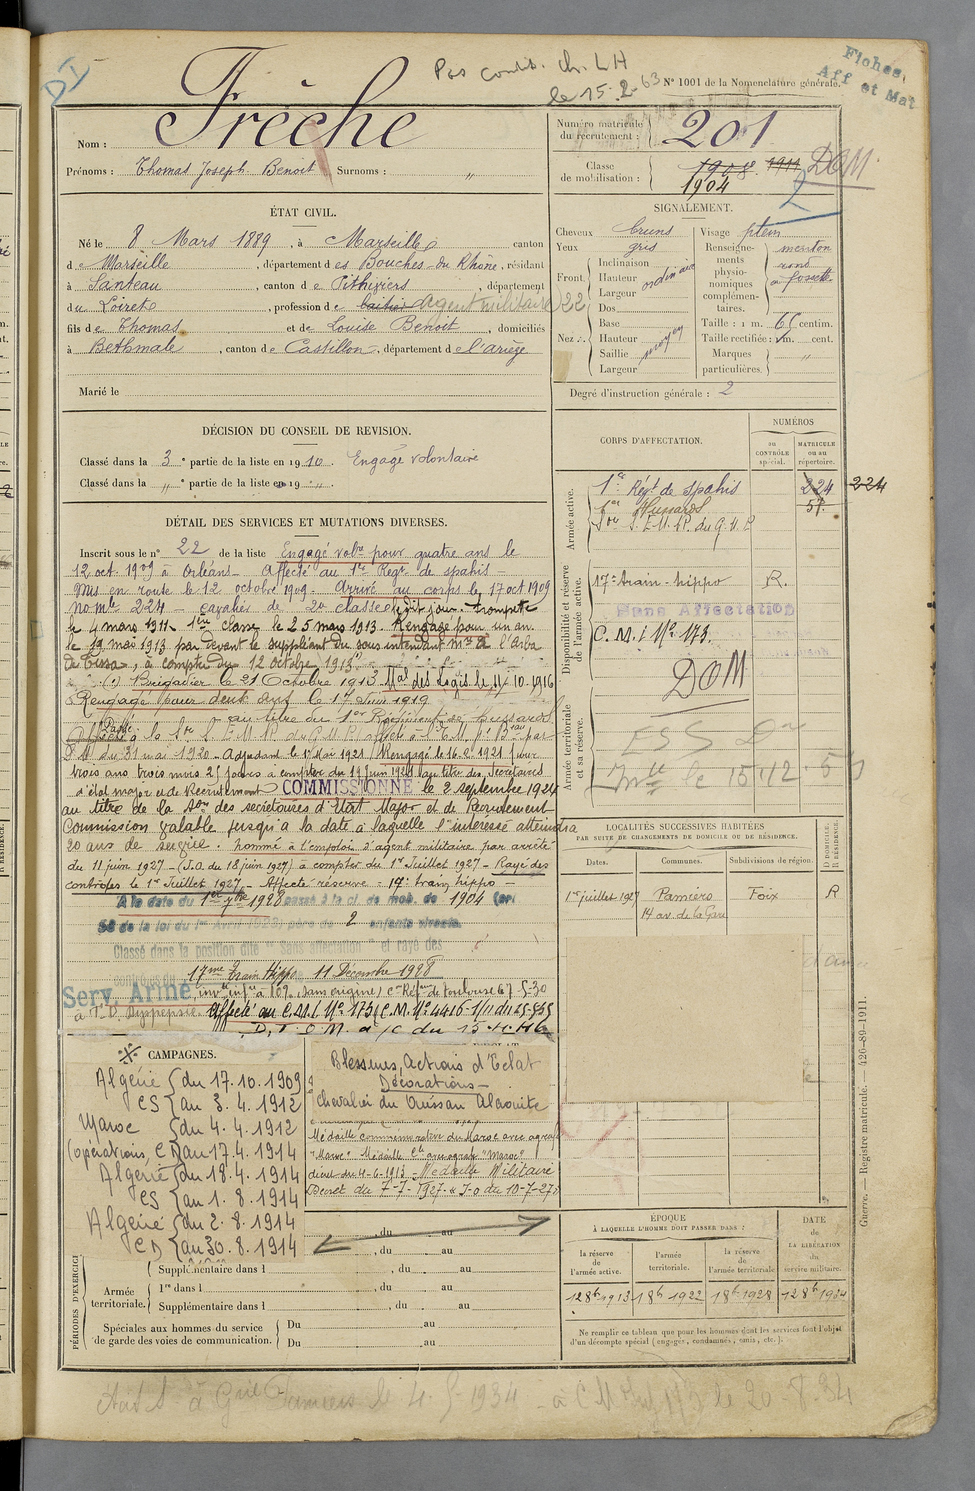 Pas condt. Ch. LH
le 15-2-63
N° 1001 de la Nomenclature générale.
Fiches,
Aff et Mat
Nom : Frêche
Prénoms : Thomas Joseph Benoit Surnoms : "
Numéro matricule du recrutement : 201
Classe de mobilisation : 1908 1911 DOM
1904
ÉTAT CIVIL.
Né le 8 Mars 1889, à Marseille canton
de Marseille, département des Bouches-du-Rhône, résidant
à Santeau, canton de Pithiviers, département
du Loiret, profession de laitier Agent militaire
fils de Thomas et de Louise Benoit, domiciliés
à Bethmale, canton de Castillon, département de l'ariège
Marié le
SIGNALEMENT.
Cheveux bruns
Yeux gris
Front Inclinaison
Hauteur ordinaire
Largeur
Nez : Dos
Base
Hauteur moyen
Saillie
Largeur
Visage plein
Renseignements physionomiques complémentaires. menton rond à fossette
Taille : 1 m. 65 centim.
Taille rectifiée : 1 m. cent.
Marques particulières. "
Degré d'instruction générale : 2
DÉCISION DU CONSEIL DE REVISION.
Classé dans la 3e partie de la liste en 1910. Engagé volontaire
Classé dans la " e partie de la liste en 19 ".
DÉTAIL DES SERVICES ET MUTATIONS DIVERSES.
Inscrit sous le n° 22 de la liste Engagé volre pour quatre ans le
12 oct. 1909 à Orléans - Affecté au 1er Regt de spahis -
Mis en route le 12 octobre 1909. Arrivé au corps le 17 oct 1909
No mle 224 - cavalier de 2e classe le dit jour. trompette
le 4 mars 1911. 1ère classe le 25 mars 1913. Rengagé pour un an
le 19 mai 1913 par devant le suppléant du sous intendant mre à l'Arba
de Tissa, à compter du 12 octobre 1913.
Brigadier le 21 Octobre 1913 Mal des Logis le 11-10-1916
Rengagé pour deux ans le 17 Juin 1919
au titre du 1er Régiment de hussards
Dt du 31 mai 1920. Adjudant le 1er Mai 1921 Rengagé le 16.2.1921 pour
trois ans trois mois 25 jours à compter du 19 Juin 1921 au titre des Secrétaires
d'état major et de Recrutement COMMISSIONNÉ le 2 septembre 1924
au titre de la Son des secrétaires d'Etat Major et de Recrutement
Commission valable jusqu'à la date à laquelle l'intéressé atteindra
20 ans de service. Nommé à l'emploi d'agent militaire par arrêté
du 11 juin 1927 (J.O. du 18 juin 1927) à compter du 1er Juillet 1927 - Rayé des
contrôles le 1er Juillet 1927. Affecté réserve - 17e train hippo -
A la date du 1er 9bre 1928 passé à la cl. de mob. de 1904 (art.
58 de la loi du 1er Avril 1923) père de 2 enfants vivants.
Classé dans la position dite "Sans affectation" et rayé des
contrôles du 17me Train Hippo 11 Décembre 1928
Serv. Armé invté infre à 10% (sans origine) Con Réfme de Toulouse le 7-5-30
à T.D. Dyspepsie. Affecté au C.M.I. N° 173 (C.M. N° 4416-1/11 du 25-5-33
D.T.O.M. a/c du 15-4-46
CORPS D'AFFECTATION.
NUMÉROS
au CONTRÔLE spécial.
MATRICULE ou au répertoire.
Armée active.
1er Régt de spahis 224 224
1er Hussards 57
S.E.M.R. du G.M.P
Disponibilité et réserve de l'armée active.
17e train-hippo R.
Sans Affectation
C.M.I N° 173.
DOM
Armée territoriale et sa réserve.
LOCALITÉS SUCCESSIVES HABITÉES
PAR SUITE DE CHANGEMENTS DE DOMICILE OU DE RÉSIDENCE.
Dates. Communes. Subdivisions de région. D DOMICILE. R RÉSIDENCE.
1er juillet 1927 Pamiers Foix R
14 av. de la Gare
CAMPAGNES.
Algérie {du 17.10.1909
CS {au 3.4.1912
Maroc {du 4.4.1912
(opérations, C.D) au 17.4.1914
Algérie {du 18.4.1914
CS {au 1.8.1914
Algérie {du 2.8.1914
CD {au 30.8.1914
Blessures, Actions d'Eclat
Décorations -
Chevalier du Ouissam Alaouite
Médaille commemorative du Maroc avec agrafe
"Maroc"
décret du 4-6-1913 - Médaille Militaire
Décret du 7-7-1927 J.O du 10-7-27
, du au
, du au
PÉRIODES D'EXERCICE
Supplémentaire dans l , du au
Armée territoriale.
1re dans l , du au
Supplémentaire dans l , du au
Spéciales aux hommes du service de garde des voies de communication.
Du au
Du au
ÉPOQUE
À LAQUELLE L'HOMME DOIT PASSER DANS :
la réserve de l'armée active.
l'armée territoriale.
la réserve de l'armée territoriale.
DATE de LA LIBÉRATION du service militaire.
12 8bre 1913 1 8bre 1922 1 8bre 1928 12 8bre 1934
Ne remplir ce tableau que pour les hommes dont les services font l'objet
d'un décompte spécial (engagés, condamnés, omis, etc.).
Guerre. — Registre matricule. — 426-89-1911.